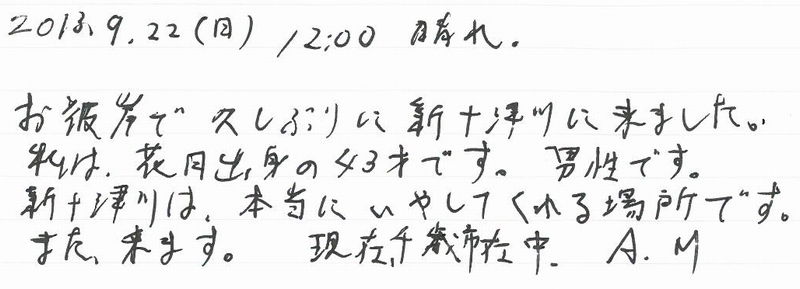 2013.9.22(日) 12:00 晴れ.
お彼岸で久しぶりに新十津川に来ました。
私は、花月出身の43才です。男性です。
新十津川は、本当にいやしてくれる場所です。
また、来ます。 現在、千歳市在中. A.M